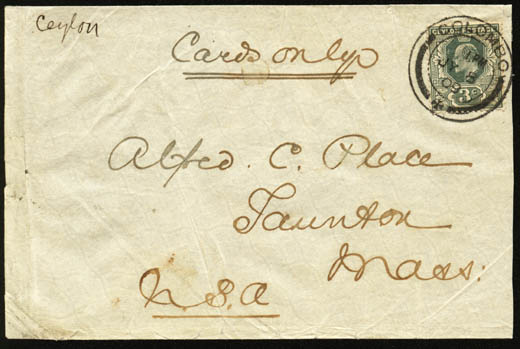 Ceylon
COLOMBO
Cards only
3c
Alfred. C. Place
Taunton
Mass:
U.S.A